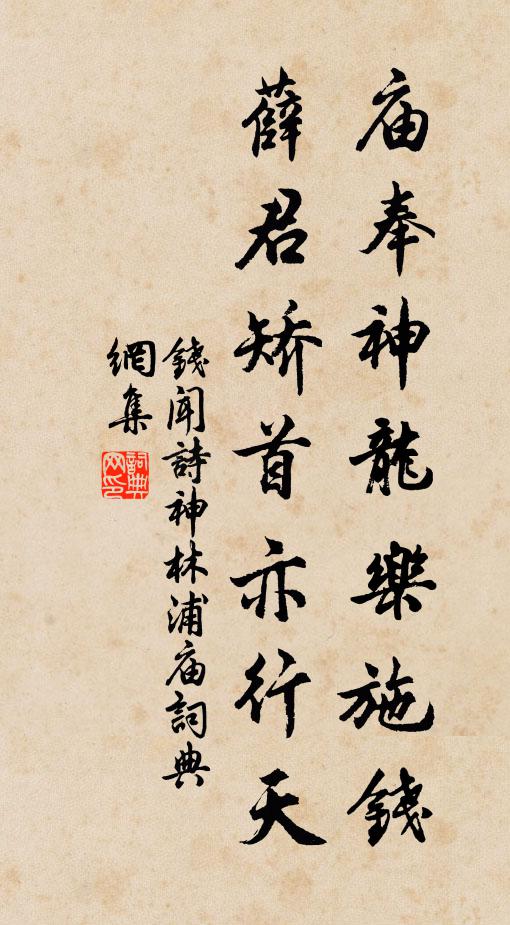 庙奉神龍樂施錢
薛君矯首亦行天
錢聞詩神林浦庙詞典
網集
詞典
网印